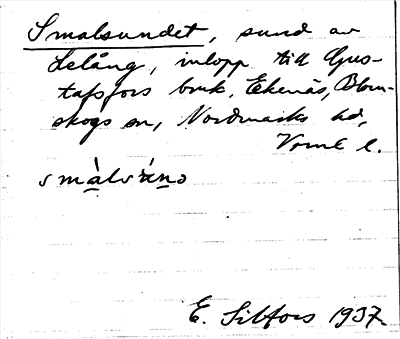 Smalsundet, sund av
Lelång, inlopp till Gus-
tafsfors bruk, Ekenäs, Blom-
skogs sn, Nordmarks hd,
Verml l.
smàlsán̲ə
E. Silfors 1937.